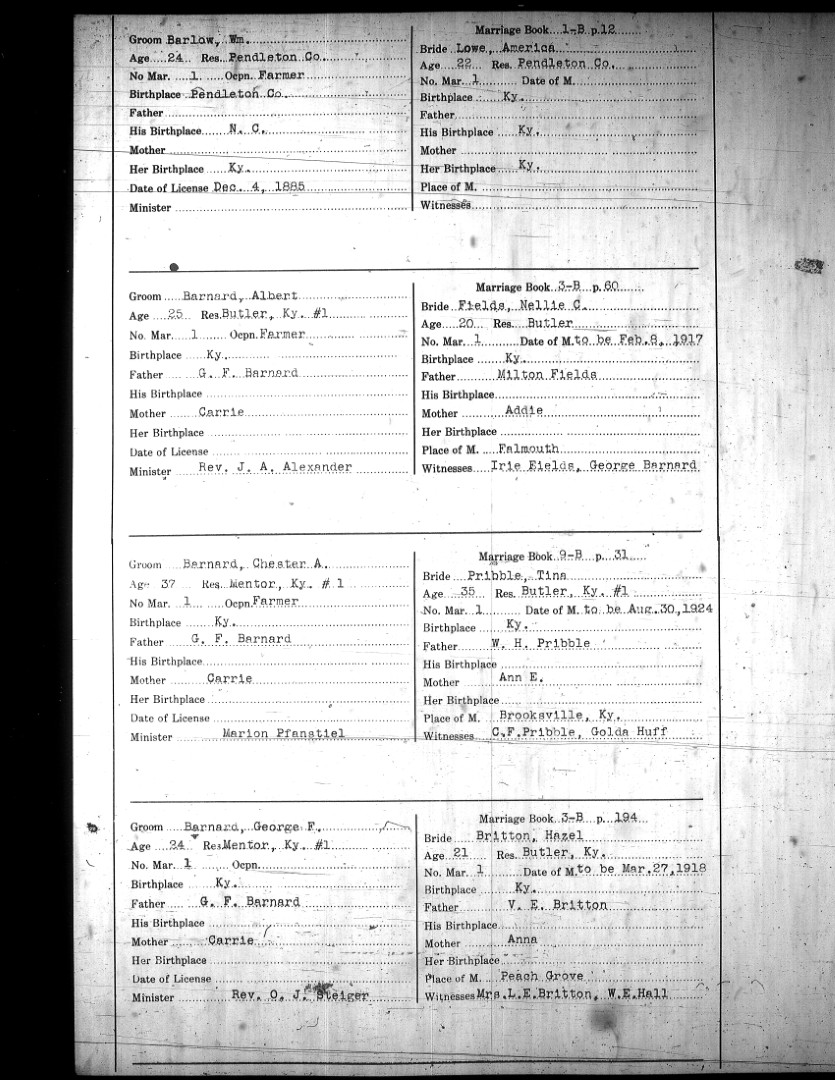 Groom Barlow, Wm.
Age 24 Res. Pendleton Co.
No Mar. 1 Ocpn. Farmer
Birthplace Pendleton Co.
Father
His Birthplace N. C.
Mother
Her Birthplace Ky.
Date of License Dec. 4, 1885
Minister
Marriage Book 1-B p. 12
Bride Lowe, America
Age 22 Res. Pendleton Co.
No. Mar. 1 Date of M.
Birthplace Ky.
Father
His Birthplace Ky.
Mother
Her Birthplace Ky.
Place of M.
Witnesses
Groom Barnard, Albert
Age 25 Res. Butler, Ky. #1
No. Mar. 1 Ocpn. Farmer
Birthplace Ky.
Father G. F. Barnard
His Birthplace
Mother Carrie
Her Birthplace
Date of License
Minister Rev. J. A. Alexander
Marriage Book 3-B p. 60
Bride Fields, Nellie C.
Age 20 Res. Butler
No. Mar. 1 Date of M. to be Feb. 8, 1917
Birthplace Ky.
Father Milton Fields
His Birthplace
Mother Addie
Her Birthplace
Place of M. Falmouth
Witnesses Irie Fields, George Barnard
Groom Barnard, Chester A.
Age 37 Res. Mentor, Ky. # 1
No Mar. 1 Ocpn. Farmer
Birthplace Ky.
Father G. F. Barnard
His Birthplace
Mother Carrie
Her Birthplace
Date of License
Minister Marion Pfanstiel
Marriage Book 9-B p. 31
Bride Pribble, Tina
Age 35 Res. Butler, Ky. #1
No. Mar. 1 Date of M. to be Aug. 30, 1924
Birthplace Ky.
Father W. H. Pribble
His Birthplace
Mother Ann E.
Her Birthplace
Place of M. Brooksville, Ky.
Witnesses C.F.Pribble, Golda Huff
Groom Barnard, George F.
Age 24 Res. Mentor, Ky. #1
No. Mar. 1 Ocpn.
Birthplace Ky.
Father G. F. Barnard
His Birthplace
Mother Carrie
Her Birthplace
Date of License
Minister Rev. O. J. Steiger
Marriage Book 3-B p. 194
Bride Britton, Hazel
Age 21 Res. Butler, Ky.
No. Mar. 1 Date of M. to be Mar. 27, 1918
Birthplace Ky.
Father V. E. Britton
His Birthplace
Mother Anna
Her Birthplace
Place of M. Peach Grove
Witnesses Mrs.L.E.Britton, W.E.Hall